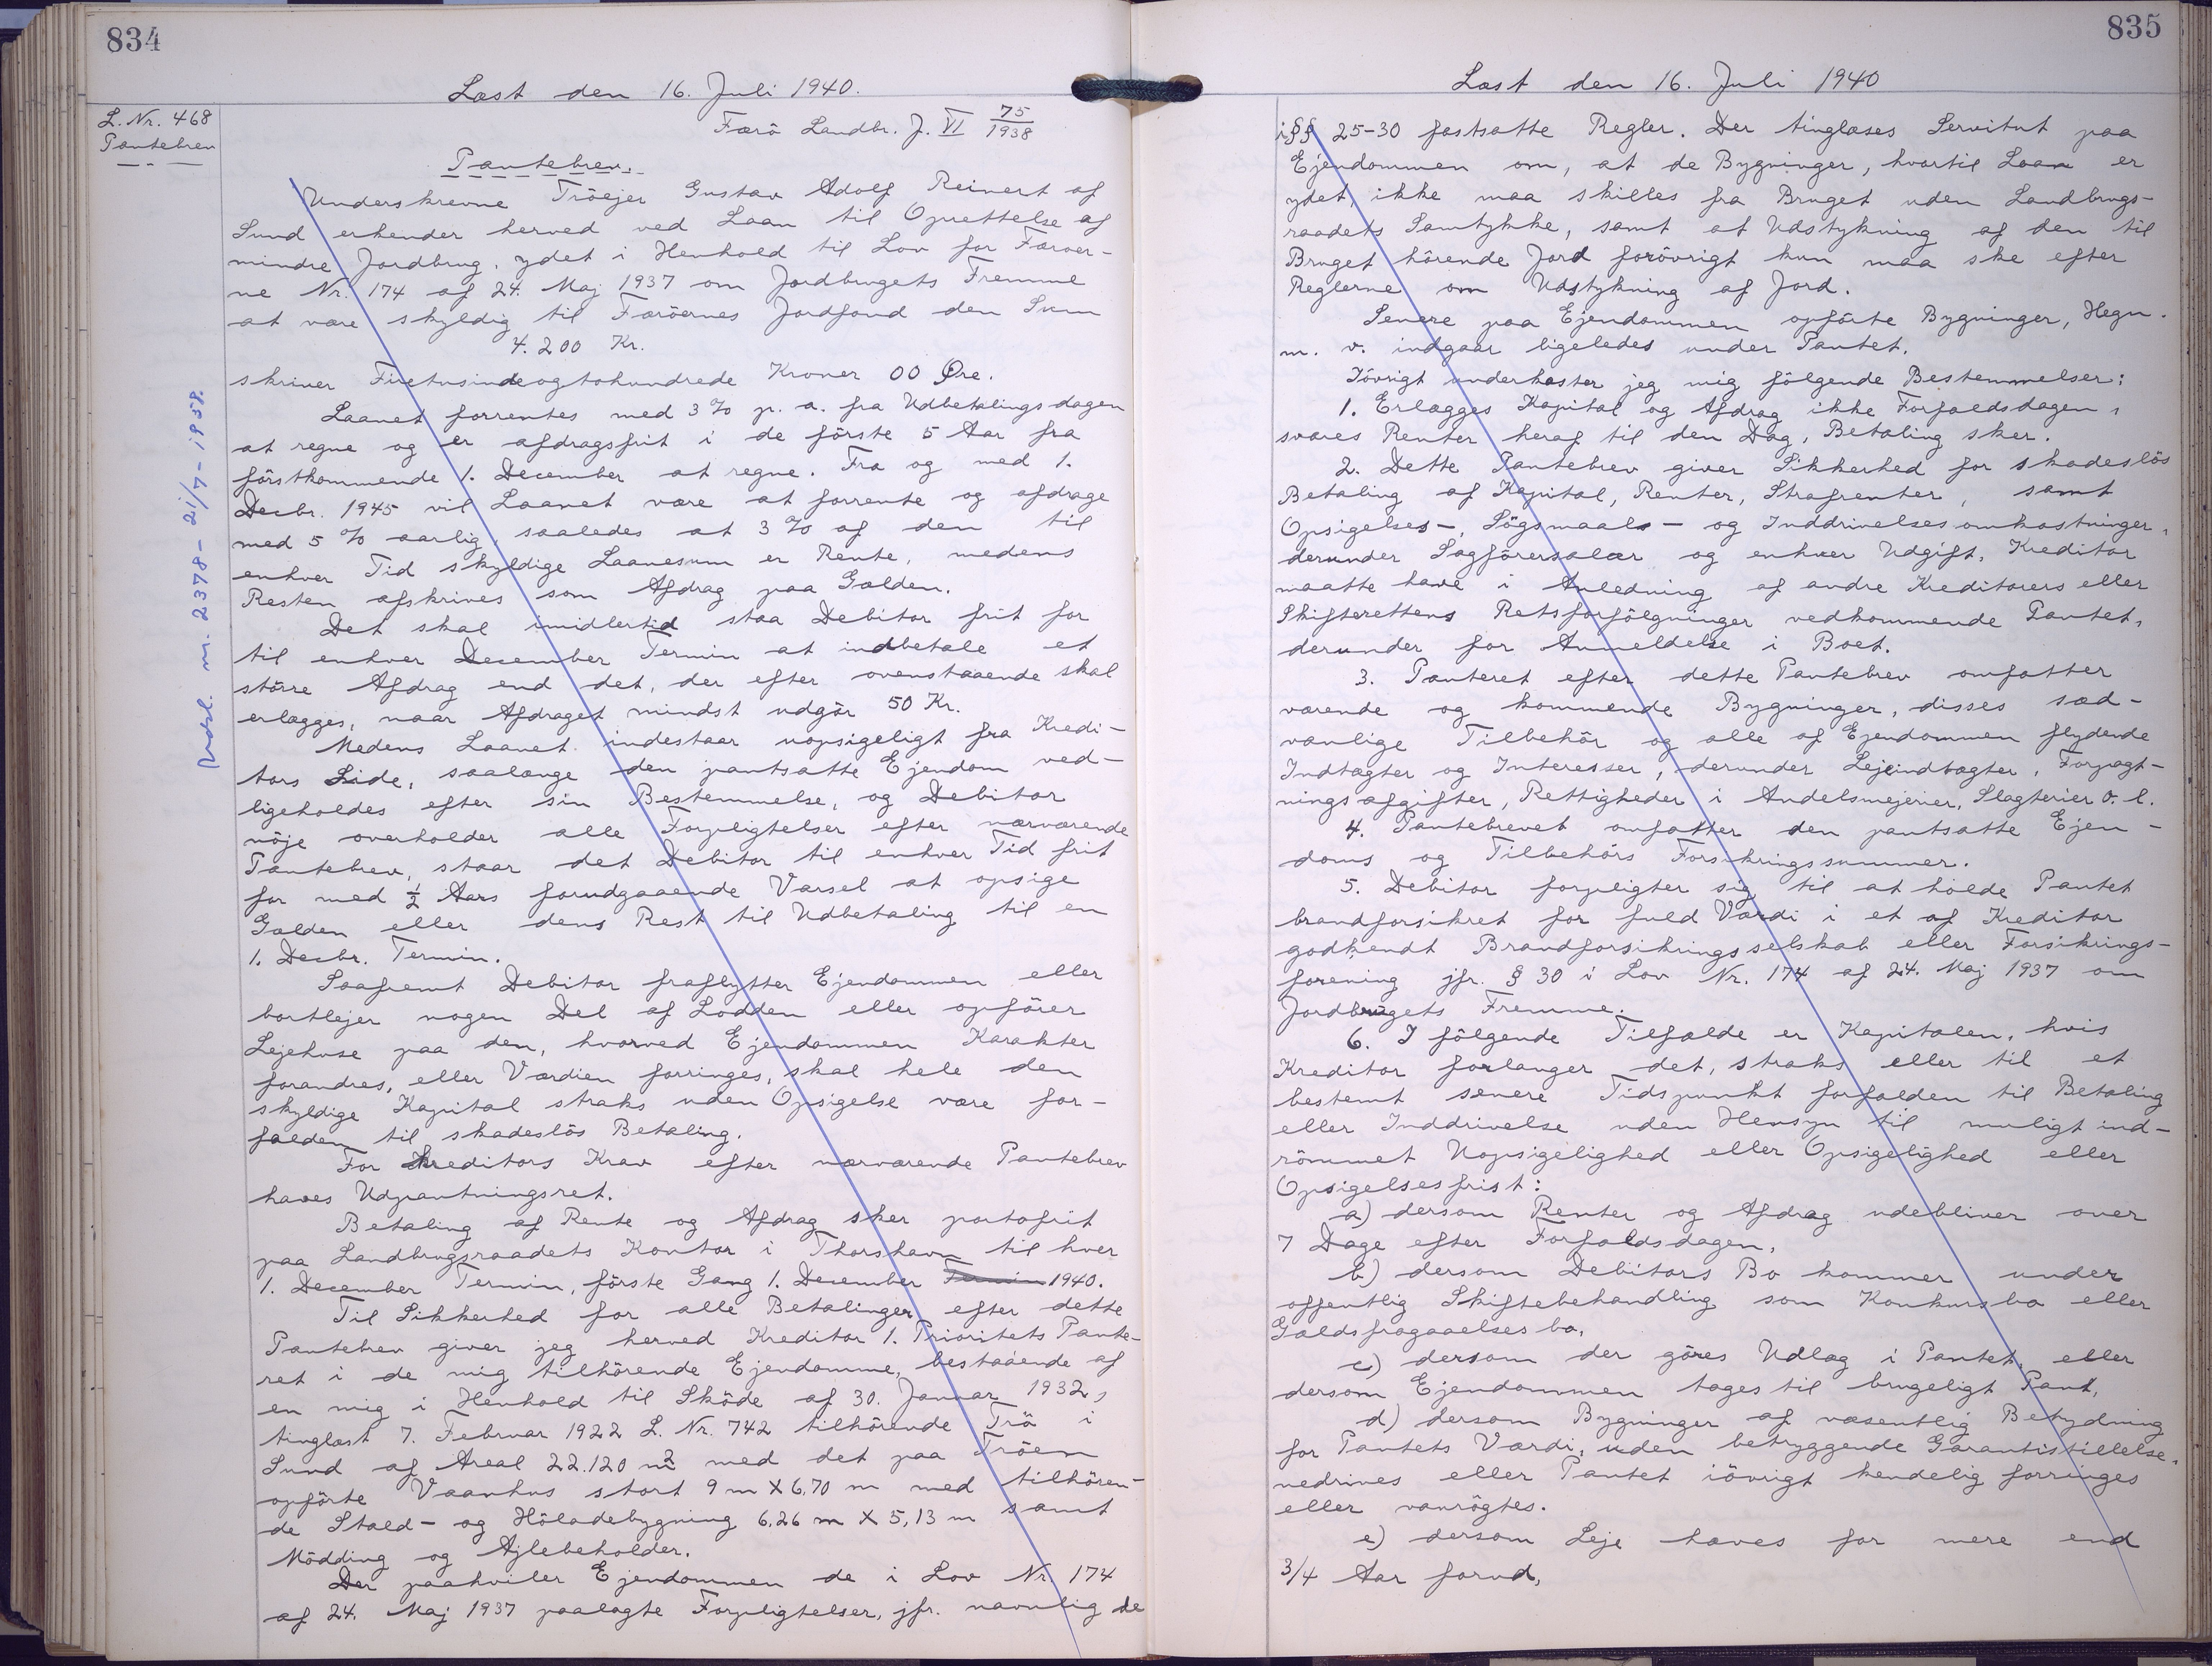 834
Læst den 16. Juli 1940.
L. Nr. 468
Pantebrev
Færö Landbr. J. VI 75/1938
Pantebrev.
Underskrevne Tröejer Gustav Adolf Reinert af
Sund erkender herved ved Laan til Oprettelse af
mindre Jordbrug, ydet i Henhold til Lov for Færöer-
ne Nr. 174 af 24. Maj 1937 om Jordbrugets Fremme
at være skyldig til Færöernes Jordfond den Sum
4.200 Kr.
skriver Firetusindeogtohundrede Kroner 00 Øre.
Laanet forrentes med 3% p. a. fra Udbetalingsdagen
at regne og er afdragsfrit i de förste 5 Aar fra
förstkommende 1. December at regne. Fra og med 1.
Decbr. 1945 vil Laanet være at forrente og afdrage
med 5 % aarlig, saaledes at 3 % af den til
enhver Tid skyldige Laanesum er Rente, medens
Resten afskrives som Afdrag paa Gælden.
Det skal imidlertid staa Debitor frit for
til enhver December Termin at indbetale et
större Afdrag end det, der efter ovenstaaende skal
erlægges, naar Afdraget mindst udgör 50 Kr.
Medens Laanet indestaar uopsigeligt fra Kredi-
tors Side, saalænge den pantsatte Ejendom ved-
ligeholdes efter sin Bestemmelse, og Debitor
nöje overholder alle Forpligtelser efter nærværende
Pantebrev, staar det Debitor til enhver Tid frit
for med 1/2 Aars forudgaaende Varsel at opsige
Gælden eller dens Rest til Udbetaling til en
1. Decbr. Termin.
Saafremt Debitor fraflytter Ejendommen eller
bortlejer nogen Del af Lodden eller opförer
Lejehuse paa den, hvorved Ejendommen Karakter
forandres, eller Værdien forringes, skal hele den
skyldige Kapital straks uden Opsigelse være for-
falden til skadeslös Betaling.
For Kreditors Krav efter nærværende Pantebrev
haves Udpantningsret.
Betaling af Rente og Afdrag sker portofrit
paa Landbrugsraadets Kontor i Thorshavn til hver
1. December Termin, förste Gang 1. December Termin 1940.
Til Sikkerhed for alle Betalinger efter dette
Pantebrev giver jeg herved Kreditor 1. Prioritets Pante-
ret i de mig tilhörende Ejendomme, bestaaende af
en mig i Henhold til Sköde af 30. Januar 1932,
tinglæst 7. Februar 1922 L. Nr. 742 tilhörende Trö i
Sund af Areal 22.120 m2 med det paa Tröen
opförte Vaanhus stort 9 m X 6,70 m med tilhören-
de Stald- og Höladebygning 6,26 m X 5,13 m samt
Mödding og Ajlebeholder.
Der paahviler Ejendommen de i Lov Nr. 174
af 24. Maj 1937 paalagte Forpligtelser, jfr. navnlig de
nr. 2378 - 21/7 - 1958.
835
Læst den 16. Juli 1940
i §§ 25-30 fastsatte Regler. Der tinglæses Servitut paa
Ejendommen om, at de Bygninger, hvortil Laan er
ydet, ikke maa skilles fra Bruget uden Landbrugs-
raadets Samtykke, samt at Udstykning af den til
Bruget hörende Jord forövrigt kun maa ske efter
Reglerne om Udstykning af Jord.
Senere paa Ejendommen opförte Bygninger, Hegn.
m. v. indgaar ligeledes under Pantet.
Iövrigt underkaster jeg mig fölgende Bestemmelser:
1. Erlægges Kapital og Afdrag ikke Forfaldsdagen,
svares Renter heraf til den Dag, Betaling sker.
2. Dette Pantebrev giver Sikkerhed for skadeslös
Betaling af Kapital, Renter, Strafrenter, samt
Opsigelses-, Sögsmaals- og Inddrivelsesomkostninger,
derunder Sagförersalær og enhver Udgift, Kreditor
maatte have i Anledning af andre Kreditorers eller
Skifterettens Retsforfölgninger vedkommende Pantet,
derunder for Anmeldelse i Boet.
3. Panteret efter dette Pantebrev omfatter
værende og kommende Bygninger, disses sæd-
vanlige Tilbehör og alle af Ejendommen flydende
Indtægter og Interesser, derunder Lejeindtægter, Forpagt-
ningsafgifter, Rettigheder i Andelsmejerier, Slagterier o. l.
4. Pantebrevet omfatter den pantsatte Ejen-
doms og Tilbehörs Forsikringssummer.
5. Debitor forpligter sig til at holde Pantet
brandforsikret for fuld Værdi i et af Kreditor
godkendt Brandforsikringsselskab eller Forsikrings-
forening jfr. § 30 i Lov Nr. 174 af 24. Maj 1937 om
Jordbrugets Fremme.
6. I fölgende Tilfælde er Kapitalen, hvis
Kreditor forlanger det, straks eller til et
bestemt senere Tidspunkt forfalden til Betaling
eller Inddrivelse uden Hensyn til muligt ind-
römmet Uopsigelighed eller Opsigelighed eller
Opsigelsesfrist:
a) dersom Renter og Afdrag udebliver over
7 Dage efter Forfaldsdagen,
b) dersom Debitors Bo kommer under
offentlig Skiftebehandling som Konkursbo eller
Gældsfragaaelsesbo,
c) dersom der göres Udlæg i Pantet, eller
dersom Ejendommen tages til brugeligt Pant,
d) dersom Bygninger af væsentlig Betydning
for Pantets Værdi, uden betryggende Garantistillelse,
nedrives eller Pantet iövrigt kendelig forringes
eller vanrögtes.
e) dersom Leje hæves for mere end
3/4 Aar forud,